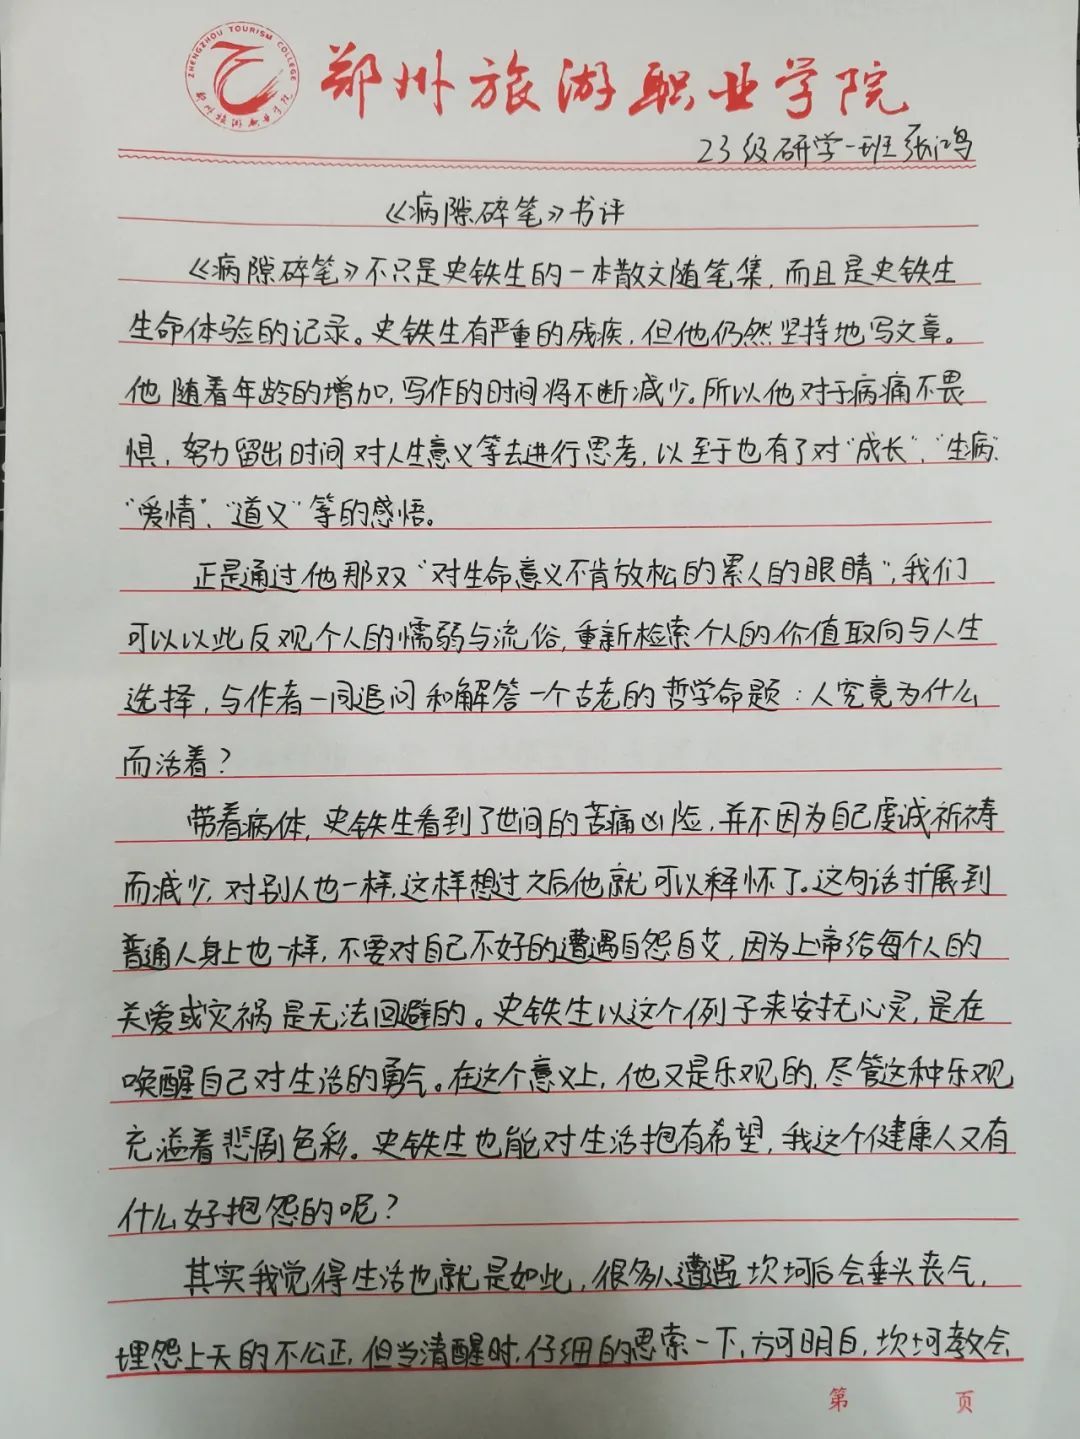 ZHENGZHOU TOURISM COLLEGE
郑州旅游职业学院
郑州旅游职业学院
23级研学一班张鸿
《病隙碎笔》书评
《病隙碎笔》不只是史铁生的一本散文随笔集,而且是史铁生
生命体验的记录。史铁生有严重的残疾,但他仍然坚持地写文章。
他随着年龄的增加,写作的时间将不断减少。所以他对于病痛不畏
惧,努力留出时间对人生意义等去进行思考,以至于也有了对“成长”、“生病”、
“爱情”、“道义”等的感悟。
正是通过他那双“对生命意义不肯放松的累人的眼睛”,我们
可以以此反观个人的懦弱与流俗,重新检索个人的价值取向与人生
选择,与作者一同追问和解答一个古老的哲学命题:人究竟为什么
而活着?
带着病体,史铁生看到了世间的苦痛凶险,并不因为自己虔诚祈祷
而减少,对别人也一样,这样想过之后他就可以释怀了。这句话扩展到
普通人身上也一样,不要对自己不好的遭遇自怨自艾,因为上帝给每个人的
关爱或灾祸是无法回避的。史铁生以这个例子来安抚心灵,是在
唤醒自己对生活的勇气。在这个意义上,他又是乐观的,尽管这种乐观
充溢着悲剧色彩。史铁生也能对生活抱有希望,我这个健康人又有
什么好抱怨的呢?
其实我觉得生活也就是如此,很多人遭遇坎坷后会垂头丧气,
埋怨上天的不公正,但当清醒时,仔细的思索一下,方可明白,坎坷教会
第 页